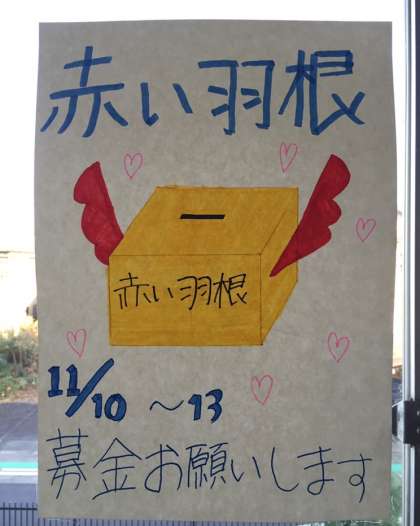 赤い羽根
赤い羽根
11/10 ～13
募金お願いします